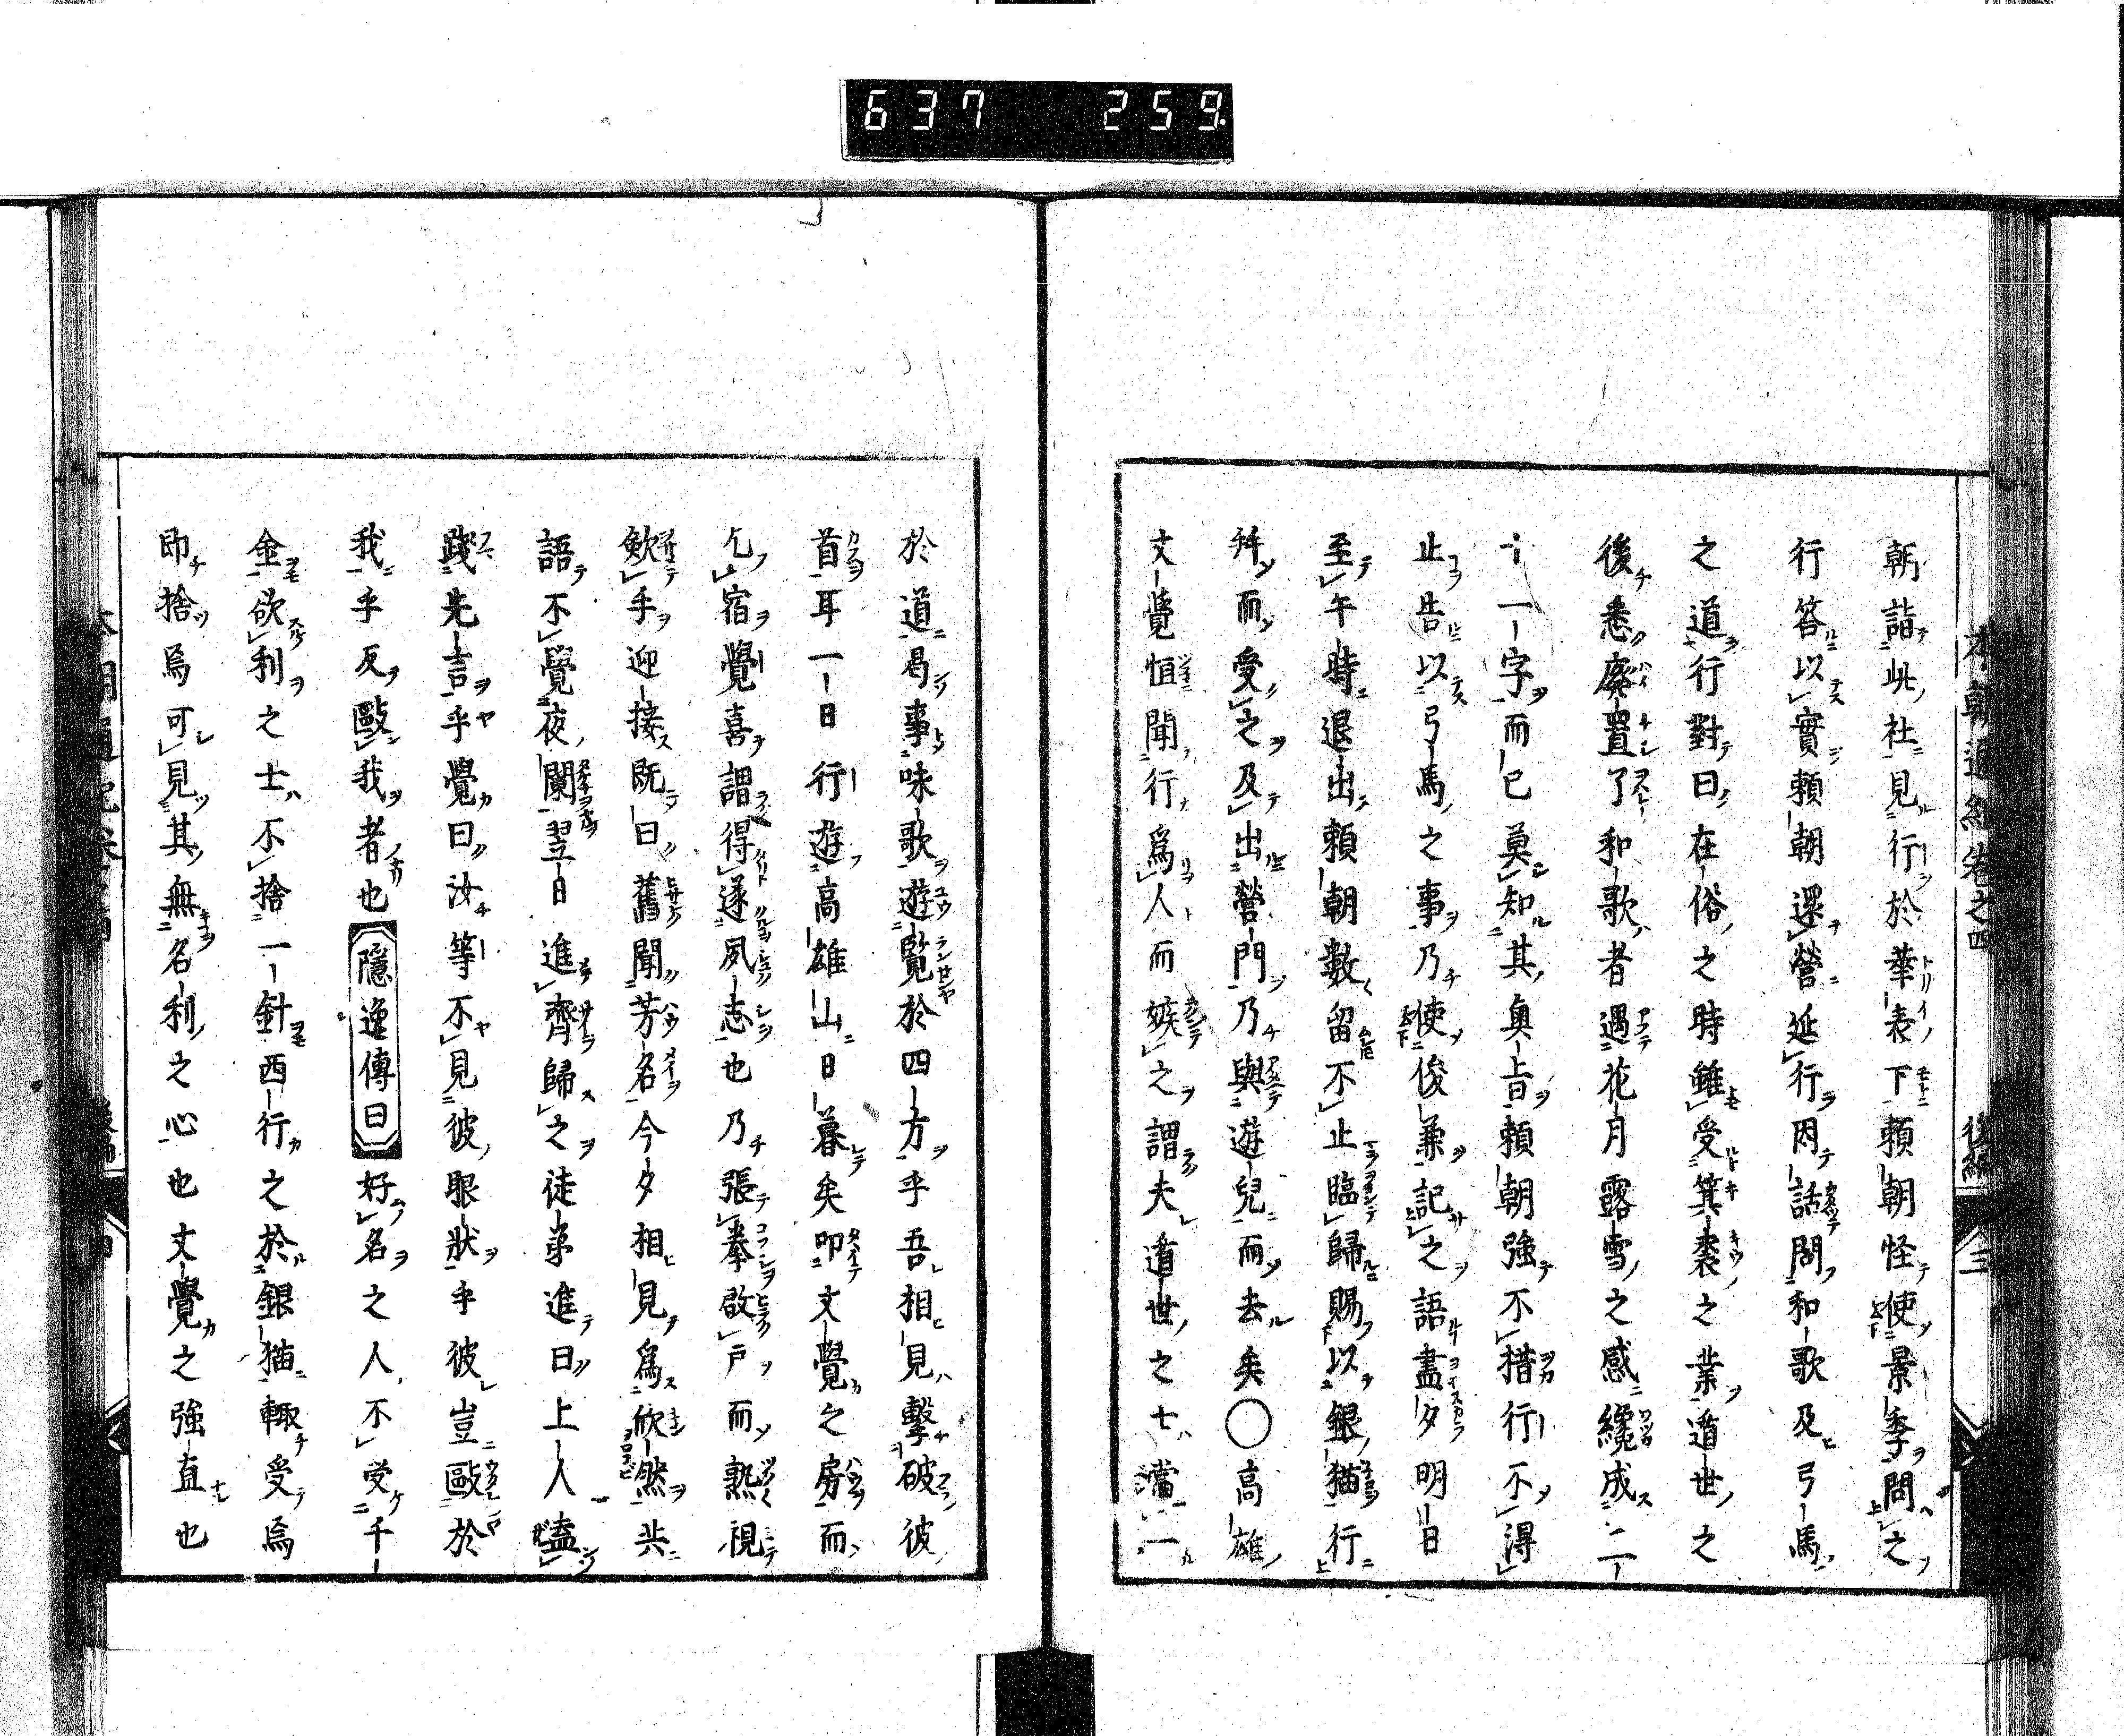 637 259
本朝通紀卷之四 後編 三
朝詣此社見行於華表下頼朝怪使景季問之
行答以實頼朝還營延行因話問和歌及弓馬
之道行對曰在俗之時雖受箕裘之業遁世之
後悉廢置了和歌者遇花月露雪之感纔成二
十一字而已莫知其奥旨頼朝強不措行不得
止告以弓馬之事乃使俊兼記之語盡夕明日
至午時退出頼朝數留不止臨歸賜以銀猫行
拜而受之及出營門乃與遊兒而去矣〇高雄
文覺恒聞行爲人而嫉之謂夫遁世之士當一
於道曷事味歌遊覧於四方乎吾相見擊破彼
首耳一日行遊高雄山日暮矣叩文覺之房而
乞宿覺喜謂得遂夙志也乃張拳啟戸而熟視
歛手迎接既曰舊聞芳名今夕相見爲欣然共
語不覺夜闌翌日進齊歸之徒弟進曰上人盍
踐先言乎覺曰汝等不見彼眼狀乎彼豈毆於
我乎反毆我者也隱逸傳曰好名之人不受千
金欲利之士不捨一針西行之於銀猫輙受焉
即捨焉可見其無名利之心也文覺之強直也